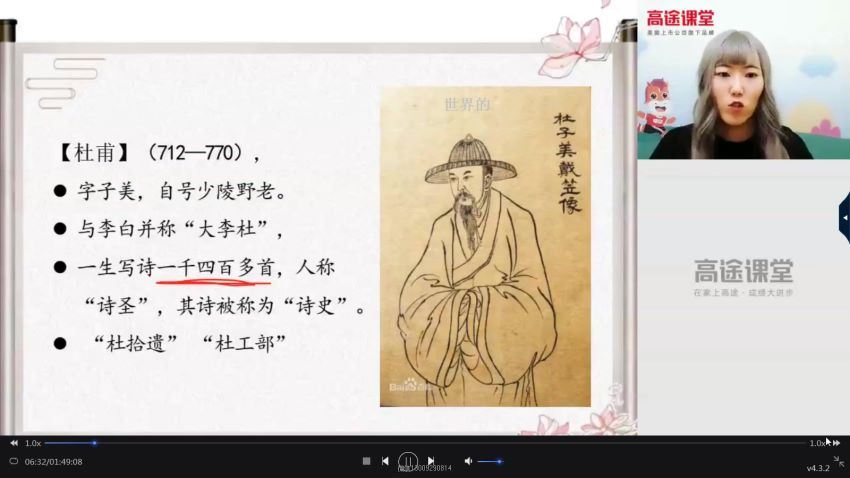 【杜甫】（712—770），
● 字子美，自号少陵野老。
● 与李白并称“大李杜”，
● 一生写诗一千四百多首，人称
“诗圣”，其诗被称为“诗史”。
● “杜拾遗” “杜工部”
世界的
杜子美戴笠像
Bai百科
高途课堂
美国上市公司旗下品牌
高途课堂
在家上高途·成绩大进步
1.0x
1.0x
06:32/01:49:08
v4.3.2